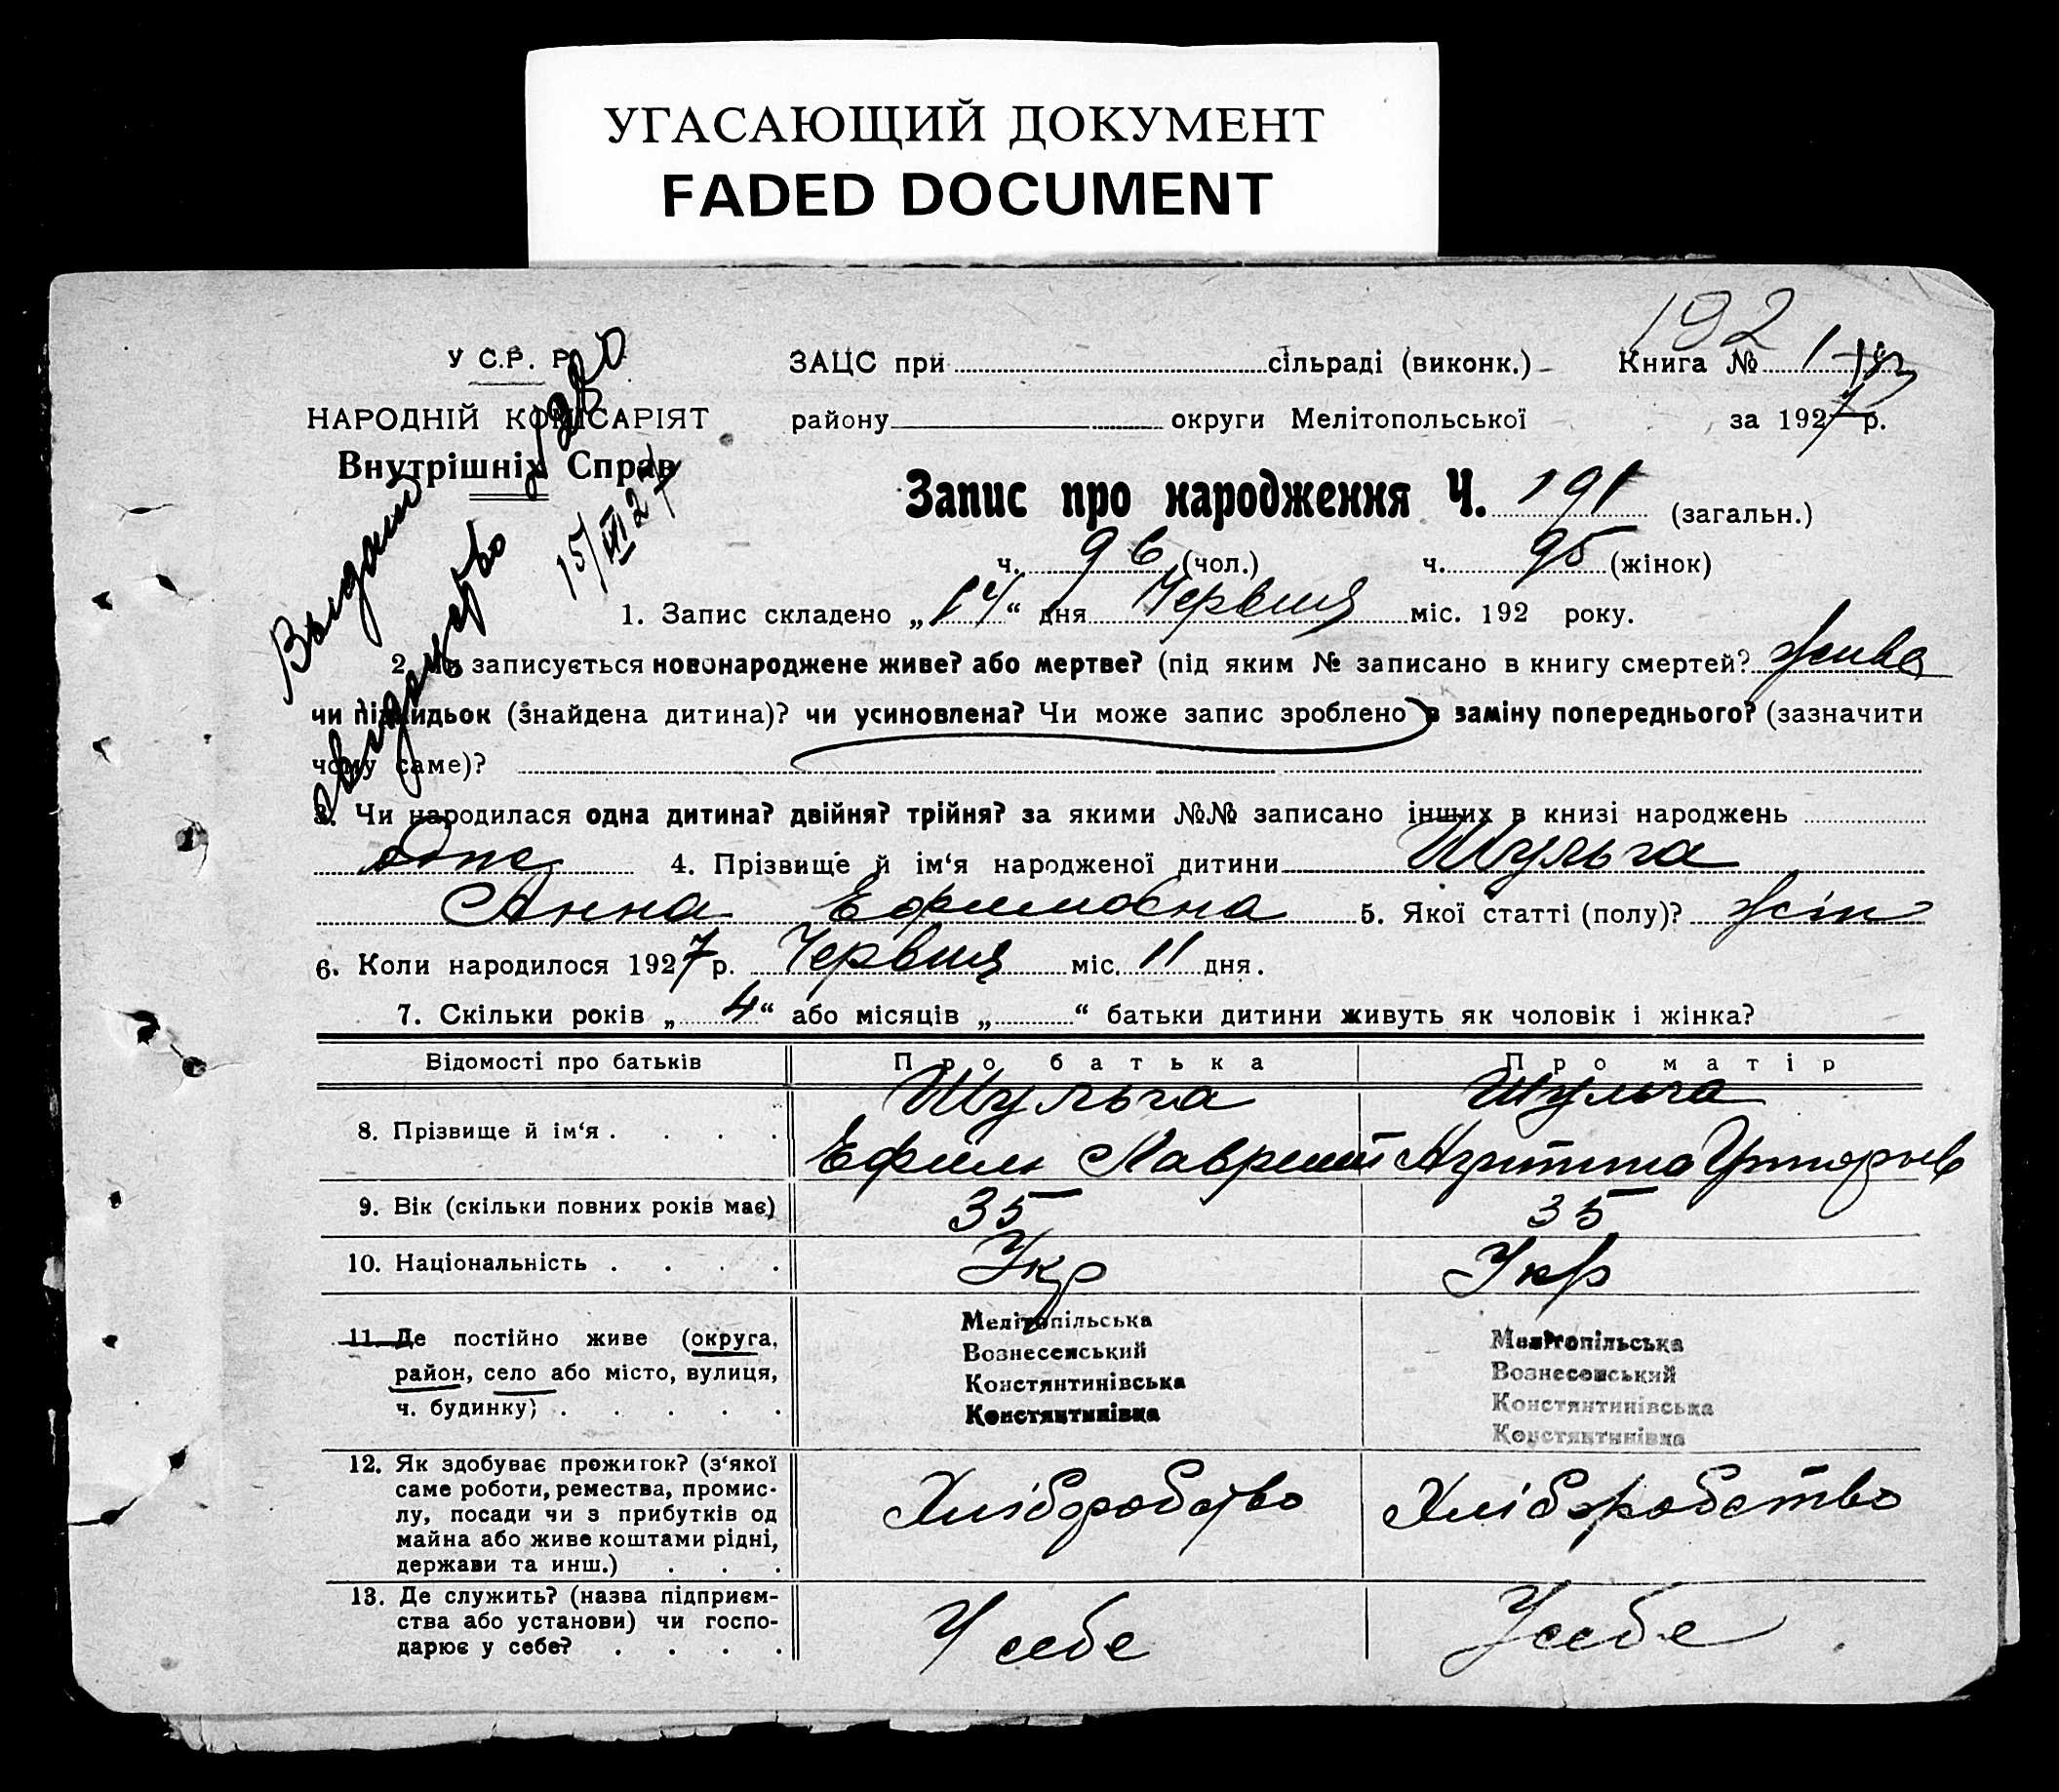 УГАСАЮЩИЙ ДОКУМЕНТ
FADED DOCUMENT
192
У С.Р. Р. ЗАЦС при сільраді (виконк.) Книга № 1
НАРОДНІЙ КОМІСАРІЯТ району округи Мелітопольської за 1927 р.
Внутрішніх Справ
Запис про народження Ч. 191 (загальн.)
ч. 96 (чол.) ч. 95 (жінок)
15/VII 27
1. Запис складено „14“ дня Червня міс. 192 року.
2. Чи записується новонароджене живе? або мертве? (під яким № записано в книгу смертей? жива
чи підкидьок (знайдена дитина)? чи усиновлена? Чи може запис зроблено в заміну попереднього? (зазначити
чому саме)?
3. Чи народилася одна дитина? двійня? трійня? за якими №№ записано інших в книзі народжень
одна 4. Прізвище й ім‘я народженої дитини Шульга
Анна Ефимовна 5. Якої статті (полу)? жін
6. Коли народилося 1927 р. Червня міс. 11 дня.
7. Скільки років „4“ або місяців „ “ батьки дитини живуть як чоловік і жінка?
Відомості про батьків Про батька Про матір
Шульга Шульга
8. Прізвище й ім‘я . . . . Ефим
9. Вік (скільки повних років має) 35 35
10. Національність . . . . Укр Укр
11. Де постійно живе (округа,
район, село або місто, вулиця,
ч. будинку) . . . . .
Мелітопільська
Вознесенський
Констянтинівська
Констянтинівка
Мелітопільська
Вознесенський
Констянтинівська
Констянтинівка
12. Як здобуває прожиток? (з‘якої
саме роботи, ремества, промис-
лу, посади чи з прибутків од
майна або живе коштами рідні,
держави та инш.) . . .
Хліборобство Хліборобство
13. Де служить? (назва підприєм-
ства або установи) чи госпо-
дарює у себе? . . . .
У себе У себе